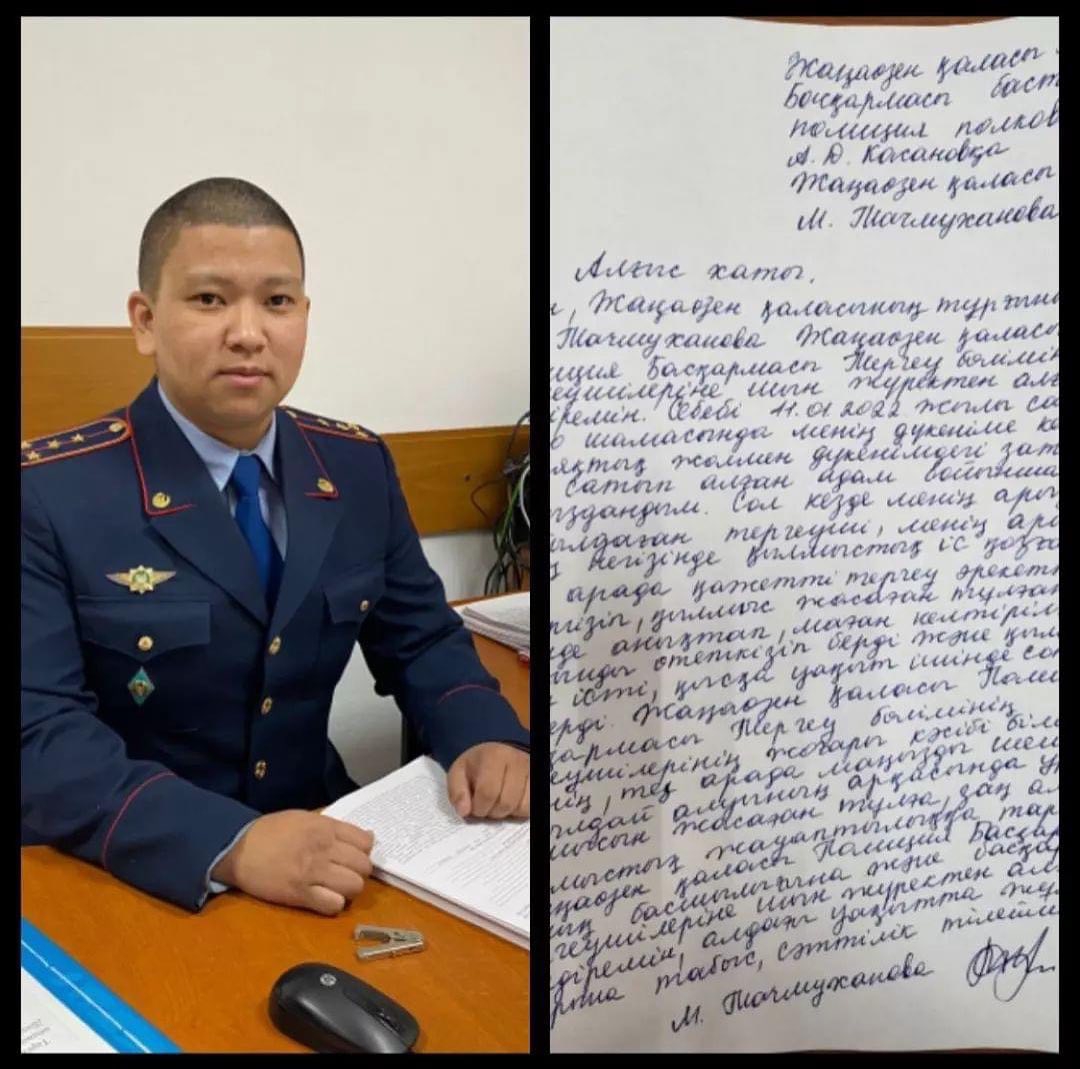 Жаңаөзен қаласы
Басқармасы баст
полиция полков
А. Д. Касановқа
Жаңаөзен қаласы
М. Тачмуханова
Алғыс хаты.
н, Жаңаөзен қаласының тұрғыны
Тачмуханова Жаңаөзен қаласы
иция Басқармасы Тергеу бөлімін
еушілеріне шын жүректен алғ
іремін. Себебі 11.01.2022 жылы са
шамасында менің дүкеніме ке
яқтық жолмен дүкенімдегі зат
сатып алған адам бойынша
ыздандым. Сол кезде менің ары
ылдаған тергеуші, менің ары
ң негізінде қылмыстық іс қозға
арада қажетті тергеу әрекетт
ргізіп, қылмыс жасаған тұлған
де анықтап, маған келтіріл
ынды өтеткізіп берді және қыл
істі, қысқа уақыт ішінде сот
ерді. Жаңаөзен қаласы Поли
қармасы Тергеу бөлімінің
еушілерінің жоғары кәсіби біл
нің, тез арада маңызды шеш
былдай алуының арқасында ұр
мысын жасаған тұлға, заң ал
мыстық жауаптылыққа тар
ңаөзен қаласы Полиция Басқар
ның басшылығына және басқар
геушілеріне шын жүректен алғ
діремін, алдағы уақытта жұм
рына табыс, сәттілік тілейм
М. Тачмуханова
hp